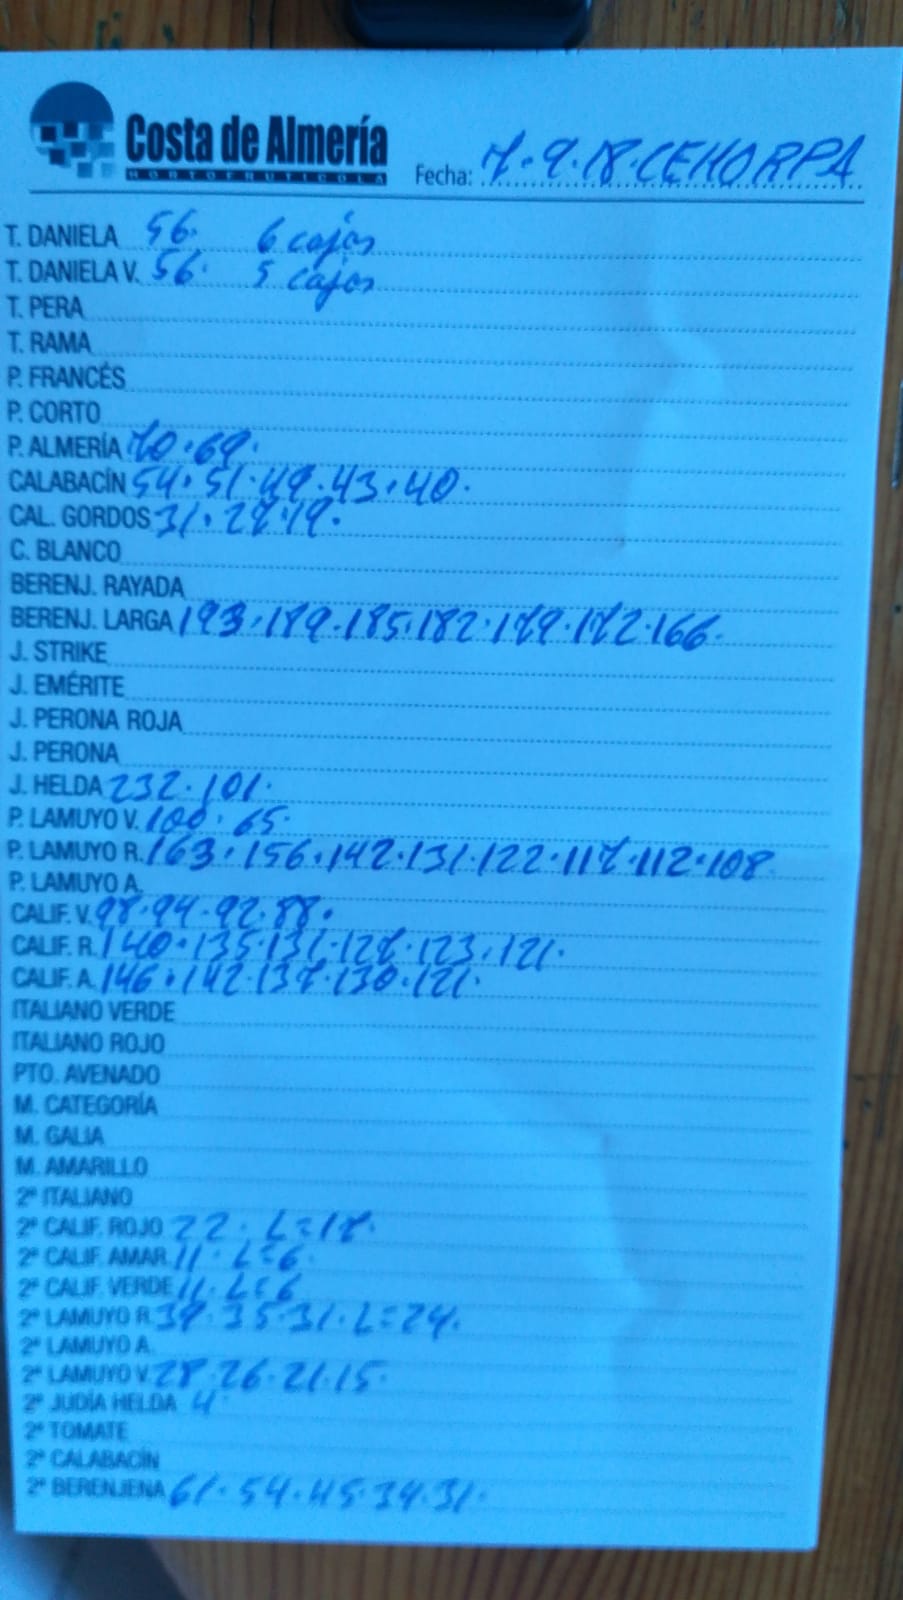 Costa de Almería
HORTOFRUTICOLA
Fecha: 7.9.18.CEHORPA
T. DANIELA 56. 6 cajas
T. DANIELA V. 56. 5 cajas
T. PERA
T. RAMA
P. FRANCÉS
P. CORTO
P. ALMERÍA 70.69.
CALABACÍN 54.51.49.43.40.
CAL. GORDOS 31.27.19.
C. BLANCO
BERENJ. RAYADA
BERENJ. LARGA 193.189.185.182.179.172.166.
J. STRIKE
J. EMÉRITE
J. PERONA ROJA
J. PERONA
J. HELDA 232.101.
P. LAMUYO V. 100.65.
P. LAMUYO R. 163.156.142.131.122.117.112.108.
P. LAMUYO A.
CALIF. V. 98.94.92.88.
CALIF. R. 140.135.131.127.123.121.
CALIF. A. 146.142.137.130.121.
ITALIANO VERDE
ITALIANO ROJO
PTO. AVENADO
M. CATEGORÍA
M. GALIA
M. AMARILLO
2ª ITALIANO
2ª CALIF. ROJO 22. L=17.
2ª CALIF. AMAR. 11. L=6.
2ª CALIF. VERDE 11. L=6
2ª LAMUYO R. 39.35.31.L=24.
2ª LAMUYO A.
2ª LAMUYO V. 28.26.21.15.
2ª JUDÍA HELDA 4
2ª TOMATE
2ª CALABACÍN
2ª BERENJENA 61.54.45.34.31.